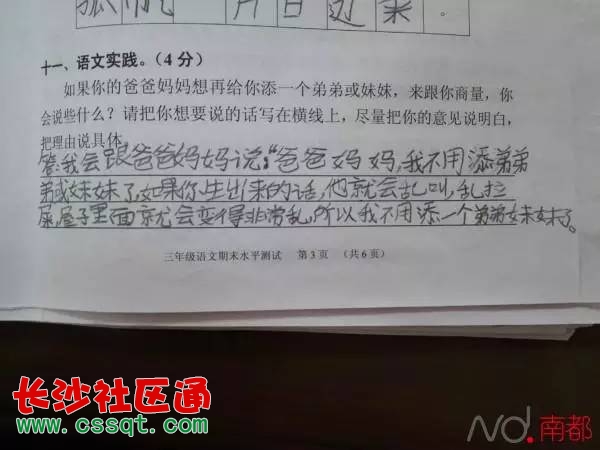 孤帆一片日边来。
十一、语文实践。(4分)
如果你的爸爸妈妈想再给你添一个弟弟或妹妹，来跟你商量，你
会说些什么？请把你想要说的话写在横线上，尽量把你的意见说明白，
把理由说具体。
答:我会跟爸爸妈妈说:“爸爸妈妈,我不用添弟弟
弟或妹妹了,如果你生出来的话,他就会乱叫,乱拉
屎,屋子里面就会变得非常乱,所以我不用添一个弟弟妹妹了。
三年级语文期末水平测试 第3页 (共6页)
长沙社区通
www.cssqt.com
Nd.南都